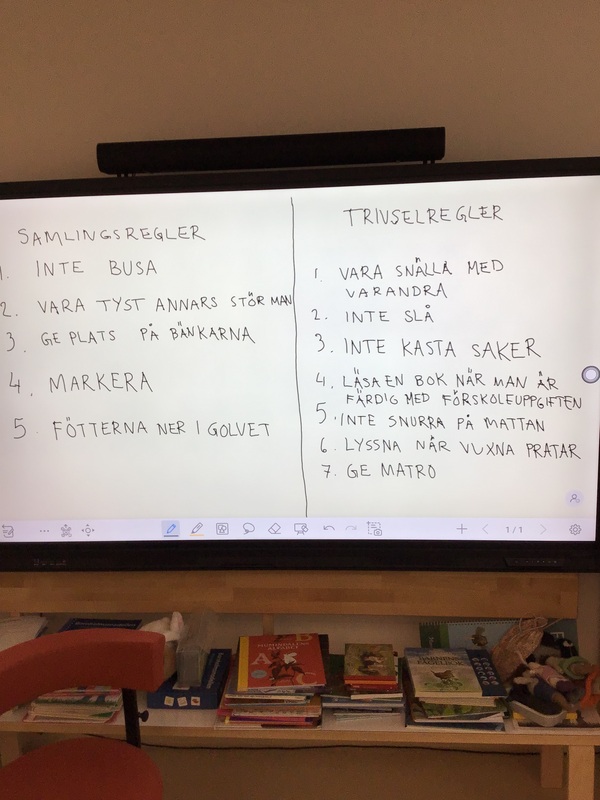 SAMLINGSREGLER
1. INTE BUSA
2. VARA TYST ANNARS STÖR MAN
3. GE PLATS PÅ BÄNKARNA
4. MARKERA
5. FÖTTERNA NER I GOLVET
TRIVSELREGLER
1. VARA SNÄLLA MED
VARANDRA
2. INTE SLÅ
3. INTE KASTA SAKER
4. LÄSA EN BOK NÄR MAN ÄR
FÄRDIG MED FÖRSKOLEUPPGIFTEN
5. INTE SNURRA PÅ MATTAN
6. LYSSNA NÄR VUXNA PRATAR
7. GE MATRO
1/1